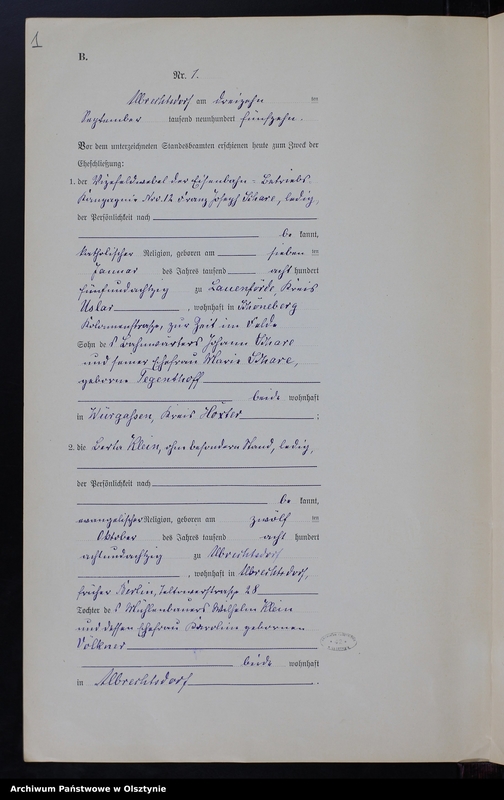 1
B.
Nr. 1.
Albrechtsdorf am dreizehn ten
September tausend neunhundert fünfzehn.
Vor dem unterzeichneten Standesbeamten erschienen heute zum Zweck der
Eheschließung:
1. der Vizefeldwebel der Eisenbahn-Betriebs-
Kompagnie Nro. 12 Franz Joseph Schare, ledig,
der Persönlichkeit nach
be kannt,
katholischer Religion, geboren am sieben ten
Januar des Jahres tausend acht hundert
fünfundachtzig zu Lauenförde, Kreis
Uslar, wohnhaft in Schöneberg
Kolonnenstraße, zur Zeit im Felde
Sohn des Bahnwärters Johann Schare
und seiner Ehefrau Marie Schare,
geborne Tegenthoff
beide wohnhaft
in Würgassen, Kreis Höxter;
2. die Berta Klein, ohne besondern Stand, ledig,
der Persönlichkeit nach
be kannt,
evangelischer Religion, geboren am zwölf ten
Oktober des Jahres tausend acht hundert
achtundachtzig zu Albrechtsdorf
, wohnhaft in Albrechtsdorf,
früher Berlin, Teltowerstraße 28
Tochter des Mühlenbauers Wilhelm Klein
und dessen Ehefrau Karoline gebornen
Völkner
beide wohnhaft
in Albrechtsdorf.
Archiwum Państwowe w Olsztynie